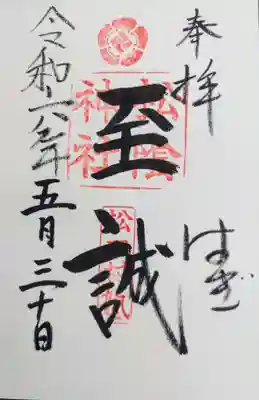 奉拝
はぎ
至誠
松陰
神社
令和六年五月三十日